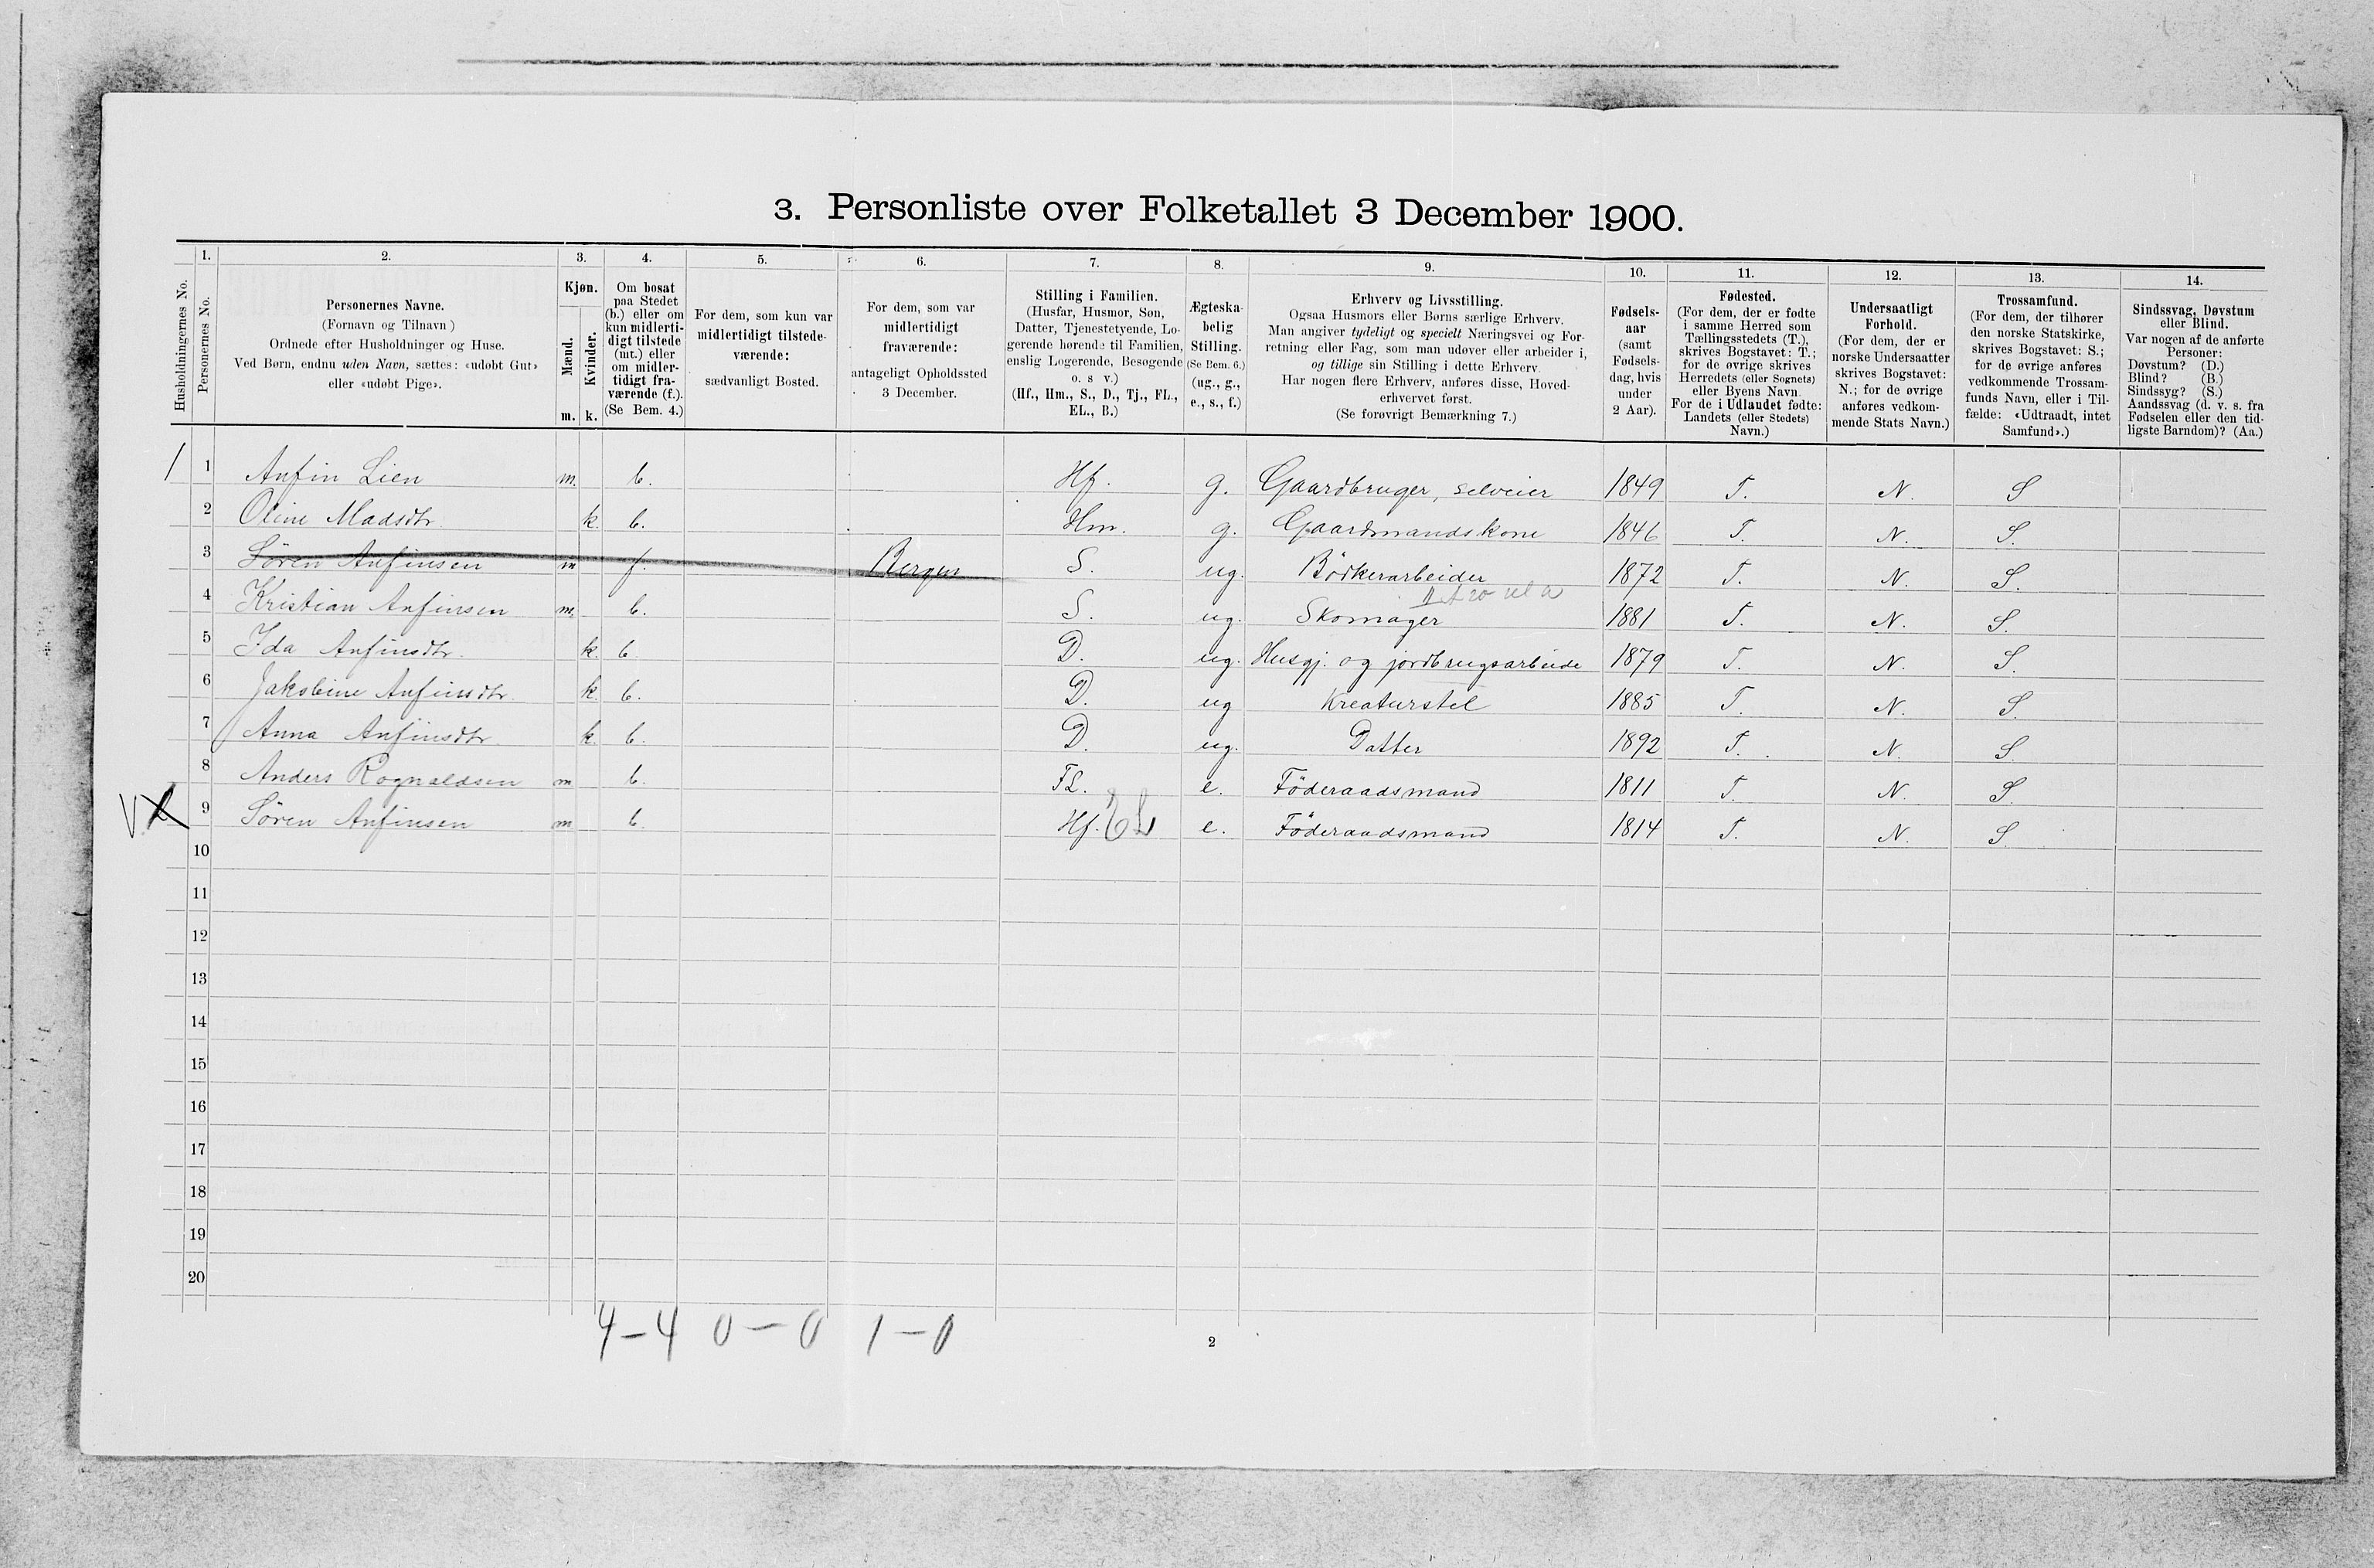 3. Personliste over Folketallet 3 December 1900.
1. 2. 3. 4. 5. 6. 7. 8. 9. 10. 11. 12. 13. 14.
Husholdningernes No.
Personernes No.
Personernes Navne.
(Fornavn og Tilnavn )
Ordnede efter Husholdninger og Huse.
Ved Børn, endnu uden Navn, sættes: «udøbt Gut»
eller «udøbt Pige».
Kjøn.
Mænd.
Kvinder.
m. k.
Om bosat
paa Stedet
(b.) eller om
kun midlerti-
digt tilstede
(mt.) eller
om midler-
tidigt fra-
værende (f.).
(Se Bem. 4.)
For dem, som kun var
midlertidigt tilstede-
værende:
sædvanligt Bosted.
For dem, som var
midlertidigt
fraværende:
antageligt Opholdssted
3 December.
Stilling i Familien.
(Husfar, Husmor, Søn,
Datter, Tjenestetyende, Lo-
gerende hørende til Familien,
enslig Logerende, Besøgende
o. s v.)
(Hf., Hm., S., D., Tj., FL.,
EL., B.)
Ægteska-
belig
Stilling.
(Se Bem. 6.)
(ug., g.,
e., s., f.)
Erhverv og Livsstilling.
Ogsaa Husmors eller Børns særlige Erhverv.
Man angiver tydeligt og specielt Næringsvei og For-
retning eller Fag, som man udøver eller arbeider i,
og tillige sin Stilling i dette Erhverv.
Har nogen flere Erhverv, anføres disse, Hoved-
erhvervet først.
(Se forøvrigt Bemærkning 7.)
Fødsels-
aar
(samt
Fødsels-
dag, hvis
under
2 Aar).
Fødested.
(For dem, der er fødte
i samme Herred som
Tællingsstedets (T.),
skrives Bogstavet: T.;
for de øvrige skrives
Herredets (eller Sognets)
eller Byens Navn.
For de i Udlandet fødte:
Landets (eller Stedets)
Navn.)
Undersaatligt
Forhold.
(For dem, der er
norske Undersaatter
skrives Bogstavet:
N.; for de øvrige
anføres vedkom-
mende Stats Navn.)
Trossamfund.
(For dem, der tilhører
den norske Statskirke,
skrives Bogstavet: S.;
for de øvrige anføres
vedkommende Trossam-
funds Navn, eller i Til-
fælde: «Udtraadt, intet
Samfund».)
Sindssvag, Døvstum
eller Blind.
Var nogen af de anførte
Personer:
Døvstum? (D.)
Blind? (B.)
Sindssyg? (S.)
Aandssvag (d. v. s. fra
Fødselen eller den tid-
ligste Barndom)? (Aa.)
1 1 Anfin Lien m. b. Hf. g. Gaardbruger, selveier 1849 T. N. S
2 Oline Madsdtr. k. b. Hm. g. Gaardmandskone 1846 T. N. S.
3 Sören Anfinsen m f. Bergen S. ug. Bödkerarbeider 1872 T. N. S.
4 Kristian Anfinsen m. b. S. ug. Skomager 1881 T. N. S.
5 Ida Anfinsdtr. k. b. D. ug. Husgj. og jordbrugsarbeide 1879 T. N. S.
6 Jakobine Anfinsdtr. k. b. D. ug Kreaturstel 1885 T. N. S.
7 Anna Anfinsdtr. k. b. D. ug. Datter 1892 T. N. S
8 Anders Rognaldsen m b. FL. e. Föderaadsmand 1811 T. N. S.
9 Sören Anfinsen m b. Hf. EL e. Föderaadsmand 1814 T. N. S
10
11
12
13
14
15
16
17
18
19
20
4-4 0-0 1-0
2